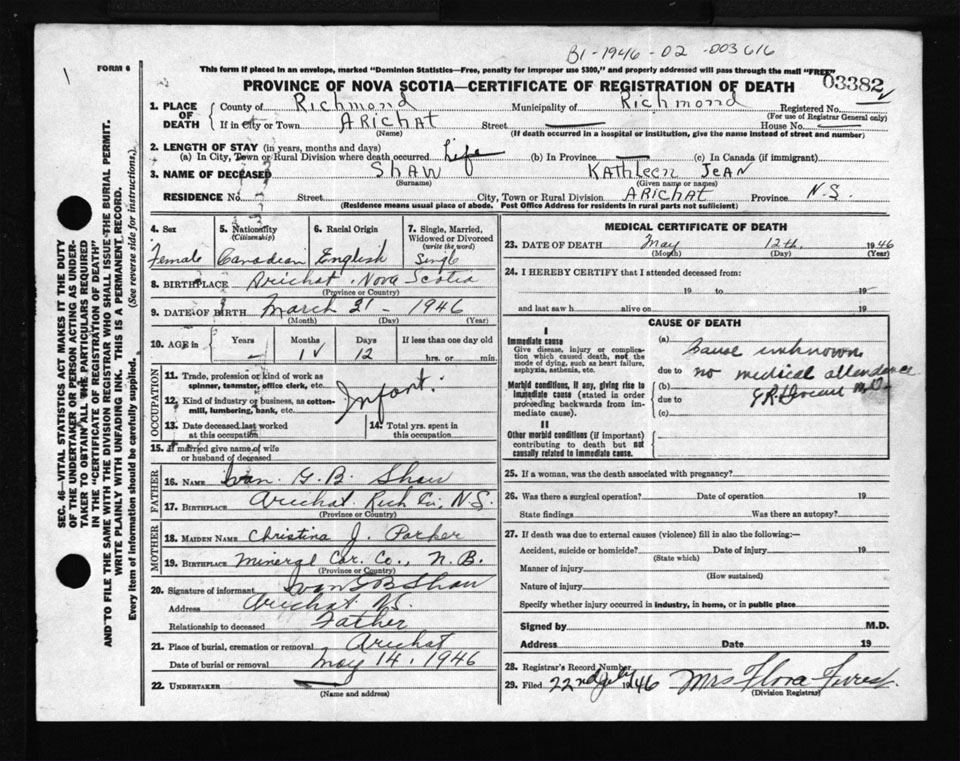 B1-1946-02-003616
FORM 6
This form if placed in an envelope, marked "Dominion Statistics—Free, penalty for improper use $300," and properly addressed will pass through the mail "FREE"
03382
PROVINCE OF NOVA SCOTIA—CERTIFICATE OF REGISTRATION OF DEATH
1. PLACE OF DEATH County of Richmond Municipality of Richmond Registered No.
(For use of Registrar General only)
If in City or Town ARichAT Street House No.
(Name) (If death occurred in a hospital or institution, give the name instead of street and number)
2. LENGTH OF STAY (in years, months and days)
(a) In City, Town or Rural Division where death occurred Life (b) In Province — (c) In Canada (if immigrant)
3. NAME OF DECEASED SHAW KAthleen JeAN
(Surname) (Given name or names)
RESIDENCE No. Street City, Town or Rural Division ARichAT Province N.S.
(Residence means usual place of abode. Post Office Address for residents in rural parts not sufficient)
SEC. 46—VITAL STATISTICS ACT MAKES IT THE DUTY
OF THE UNDERTAKER OR PERSON ACTING AS UNDER-
TAKER TO OBTAIN ALL THE PARTICULARS REQUIRED
IN THE "CERTIFICATE OF REGISTRATION OF DEATH"
AND TO FILE THE SAME WITH THE DIVISION REGISTRAR WHO SHALL ISSUE THE BURIAL PERMIT.
WRITE PLAINLY WITH UNFADING INK. THIS IS A PERMANENT RECORD.
Every item of information should be carefully supplied. (See reverse side for instructions.)
4. Sex 5. Nationality (Citizenship) 6. Racial Origin 7. Single, Married, Widowed or Divorced (write the word)
Female Canadian English Single
8. BIRTHPLACE Arichat, Nova Scotia
(Province or Country)
9. DATE OF BIRTH March 31 - 1946
(Month) (Day) (Year)
10. AGE in Years Months Days If less than one day old
— 1 12 hrs. or min.
OCCUPATION
11. Trade, profession or kind of work as spinner, teamster, office clerk, etc.
12. Kind of industry or business, as cotton-mill, lumbering, bank, etc.
Infant.
13. Date deceased last worked at this occupation
14. Total yrs. spent in this occupation
15. If married give name of wife or husband of deceased
FATHER
16. NAME Ivan G. B. Shaw
17. BIRTHPLACE Arichat Rich Co., N.S.
(Province or Country)
MOTHER
18. MAIDEN NAME Christina J. Parker
19. BIRTHPLACE Mineral Car. Co., N.B.
(Province or Country)
20. Signature of informant Ivan G B Shaw
Address Arichat N.S.
Relationship to deceased Father
21. Place of burial, cremation or removal Arichat
Date of burial or removal May 14, 1946
22. UNDERTAKER
(Name and address)
MEDICAL CERTIFICATE OF DEATH
23. DATE OF DEATH May 12th, 1946
(Month) (Day) (Year)
24. I HEREBY CERTIFY that I attended deceased from:
19 to 19
and last saw h alive on 19
CAUSE OF DEATH
I
Immediate cause
Give disease, injury or complication which caused death, not the mode of dying, such as heart failure, asphyxia, asthenia, etc.
(a) Cause unknown
due to no medical attendance
Morbid conditions, if any, giving rise to immediate cause (stated in order proceeding backwards from immediate cause).
(b)
due to M.D.
(c)
II
Other morbid conditions (if important) contributing to death but not causally related to immediate cause.
25. If a woman, was the death associated with pregnancy?
26. Was there a surgical operation? Date of operation 19
State findings Was there an autopsy?
27. If death was due to external causes (violence) fill in also the following:—
Accident, suicide or homicide? Date of injury 19
(State which)
Manner of injury
(How sustained)
Nature of injury
Specify whether injury occurred in industry, in home, or in public place
Signed by M.D.
Address Date 19
28. Registrar's Record Number
29. Filed 22nd July 1946 Mrs Flora Forrest
(Division Registrar)